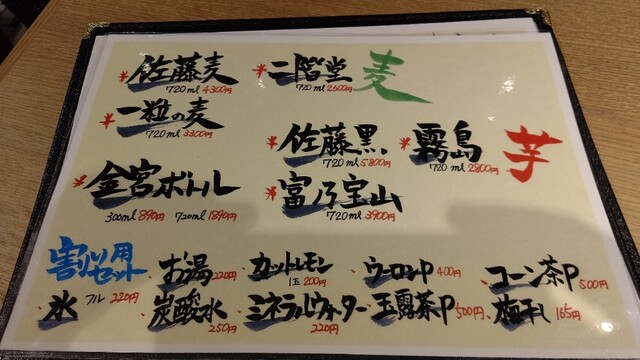 佐藤麦 720ml 4300円
二階堂 720ml 2600円
麦
一粒の麦 720ml 3300円
佐藤黒 720ml 5800円
霧島 720ml 2800円
芋
金宮ボトル 300ml 890円 720ml 1890円
富乃宝山 720ml 3900円
割り用セット
お湯 220円
カットレモン 1玉 200円
ウーロンP 400円
コーン茶P 500円
氷 フル 220円
炭酸水 250円
ミネラルウォーター 220円
玉露茶P 500円
梅干し 165円